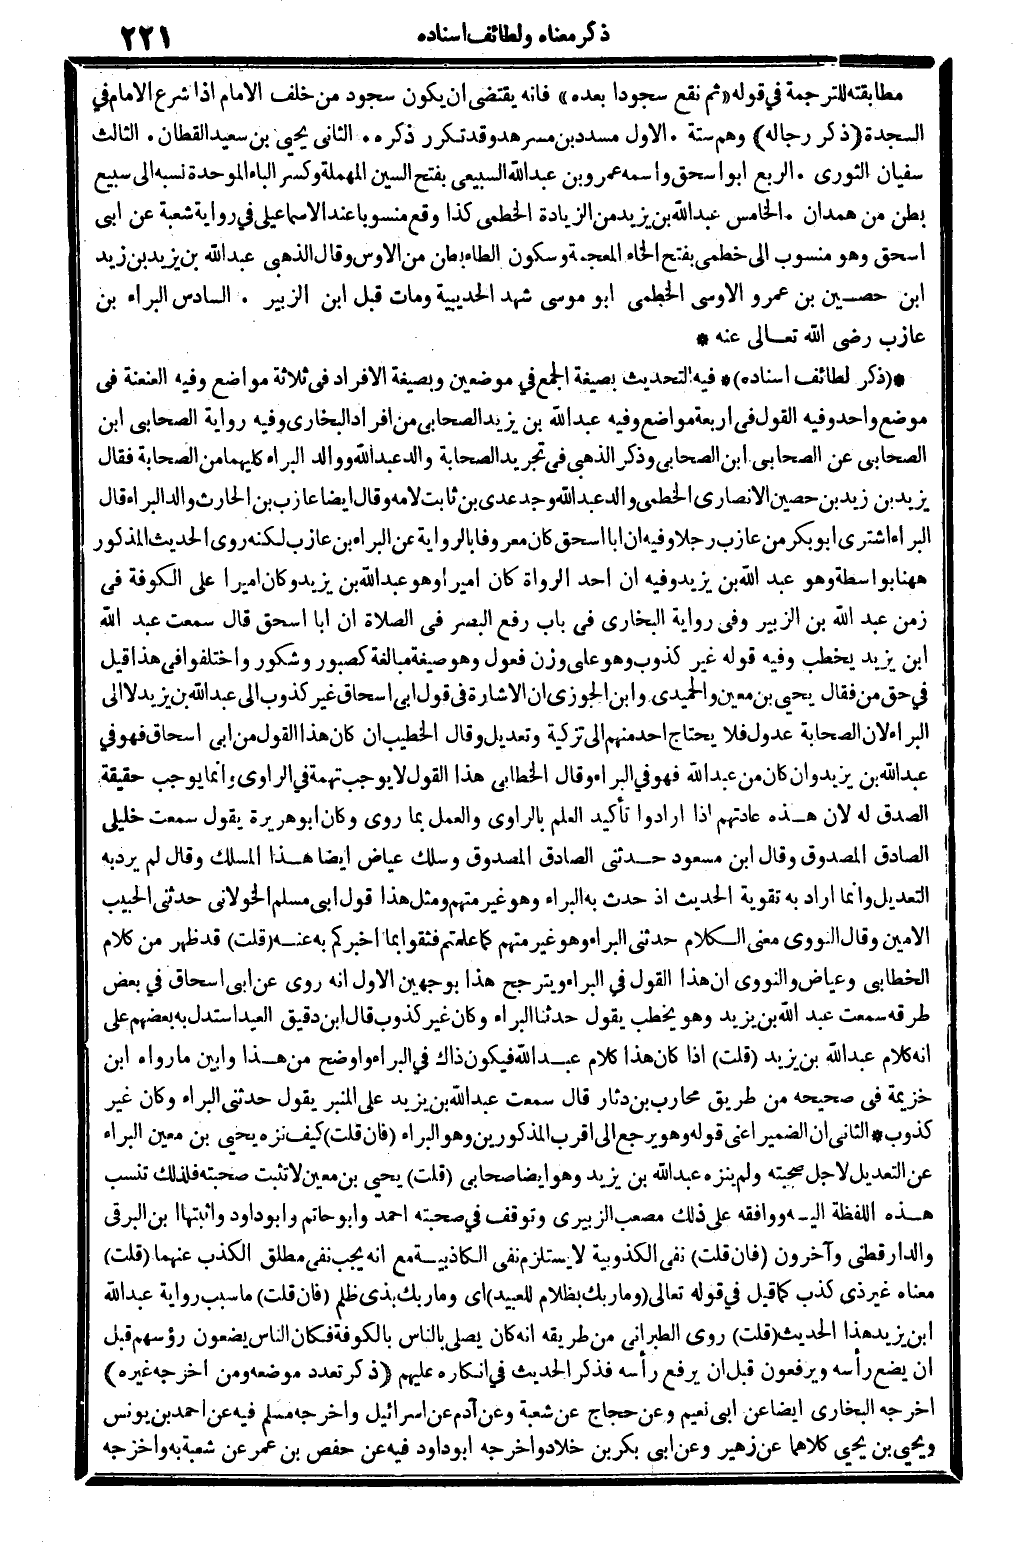 ذكر معناه ولطائف اسناده ٢٢١
مطابقته للترجمة في قوله «ثم نقع سجودا بعده» فانه يقتضى ان يكون سجود من خلف الامام اذا شرع الامام في
السجدة (ذكر رجاله) وهم ستة . الاول مسدد بن مسرهد وقد تكرر ذكره . الثانى يحيى بن سعيد القطان . الثالث
سفيان الثورى . الربع ابو اسحق واسمه عمرو بن عبد الله السبيعى بفتح السين المهملة وكسر الباء الموحدة نسبه الى سبيع
بطن من همدان . الخامس عبد الله بن يزيد من الزيادة الخطمى كذا وقع منسوبا عند الاسماعيلى في رواية شعبة عن ابى
اسحق وهو منسوب الى خطمى بفتح الخاء المعجمة وسكون الطاء بطن من الاوس وقال الذهبى عبد الله بن يزيد بن زيد
ابن حصين بن عمرو الاوسى الخطمى ابو موسى شهد الحديبية ومات قبل ابن الزبير . السادس البراء بن
عازب رضى الله تعالى عنه *
*(ذكر لطائف اسناده)* فيه التحديث بصيغة الجمع في موضعين وبصيغة الافراد فى ثلاثة مواضع وفيه العنعنة فى
موضع واحد وفيه القول فى اربعة مواضع وفيه عبد الله بن يزيد الصحابى من افراد البخارى وفيه رواية الصحابى ابن
الصحابى عن الصحابى ابن الصحابى وذكر الذهبى فى تجريد الصحابة والد عبد الله ووالد البراء كليهما من الصحابة فقال
يزيد بن زيد بن حصين الانصارى الخطمى والد عبد الله وجد عدى بن ثابت لامه وقال ايضا عازب بن الحارث والد البراء قال
البراء اشترى ابو بكر من عازب رجلا وفيه ان ابا اسحق كان معروفا بالرواية عن البراء بن عازب لكنه روى الحديث المذكور
ههنا بواسطة وهو عبد الله بن يزيد وفيه ان احد الرواة كان اميرا وهو عبد الله بن يزيد وكان اميرا على الكوفة فى
زمن عبد الله بن الزبير وفى رواية البخارى فى باب رفع البصر فى الصلاة ان ابا اسحق قال سمعت عبد الله
ابن يزيد يخطب وفيه قوله غير كذوب وهو على وزن فعول وهو صيغة مبالغة كصبور وشكور واختلفوا في هذا قيل
في حق من فقال يحيى بن معين والحميدى وابن الجوزى ان الاشارة فى قول ابى اسحاق غير كذوب الى عبد الله بن يزيد لا الى
البراء لان الصحابة عدول فلا يحتاج احد منهم الى تزكية وتعديل وقال الخطيب ان كان هذا القول من ابى اسحاق فهو في
عبد الله بن يزيد وان كان من عبد الله فهو في البراء وقال الخطابى هذا القول لا يوجب تهمة في الراوى وانما يوجب حقيقة
الصدق له لان هذه عادتهم اذا ارادوا تأكيد العلم بالراوى والعمل بما روى وكان ابو هريرة يقول سمعت خليلى
الصادق المصدوق وقال ابن مسعود حدثنى الصادق المصدوق وسلك عياض ايضا هذا المسلك وقال لم يرد به
التعديل وانما اراد به تقوية الحديث اذ حدث به البراء وهو غير متهم ومثل هذا قول ابى مسلم الخولانى حدثنى الحبيب
الامين وقال النووى معنى الكلام حدثنى البراء وهو غير متهم كما علمتم فثقوا بما اخبركم به عنه (قلت) قد ظهر من كلام
الخطابى وعياض والنووى ان هذا القول في البراء ويترجح هذا بوجهين الاول انه روى عن ابى اسحاق في بعض
طرقه سمعت عبد الله بن يزيد وهو يخطب يقول حدثنا البراء وكان غير كذوب قال ابن دقيق العيد استدل به بعضهم على
انه كلام عبد الله بن يزيد (قلت) اذا كان هذا كلام عبد الله فيكون ذاك في البراء واوضح من هذا وابين ما رواه ابن
خزيمة فى صحيحه من طريق محارب بن دثار قال سمعت عبد الله بن يزيد على المنبر يقول حدثنى البراء وكان غير
كذوب * الثانى ان الضمير اعنى قوله وهو يرجع الى اقرب المذكورين وهو البراء (فان قلت) كيف نزه يحيى بن معين البراء
عن التعديل لاجل صحبته ولم ينزه عبد الله بن يزيد وهو ايضا صحابى (قلت) يحيى بن معين لا تثبت صحبته فلذلك تنسب
هذه اللفظة اليه ووافقه على ذلك مصعب الزبيرى وتوقف في صحبته احمد وابو حاتم وابو داود واثبتها ابن البرقى
والدارقطنى وآخرون (فان قلت) نفى الكذوبية لا يستلزم نفى الكاذبية مع انه يجب نفى مطلق الكذب عنهما (قلت)
معناه غير ذى كذب كما قيل في قوله تعالى (وما ربك بظلام للعبيد) اى وما ربك بذى ظلم (فان قلت) ما سبب رواية عبد الله
ابن يزيد هذا الحديث (قلت) روى الطبرانى من طريقه انه كان يصلى بالناس بالكوفة فكان الناس يضعون رؤسهم قبل
ان يضع رأسه ويرفعون قبل ان يرفع رأسه فذكر الحديث في انكاره عليهم (ذكر تعدد موضعه ومن اخرجه غيره)
اخرجه البخارى ايضا عن ابى نعيم وعن حجاج عن شعبة وعن آدم عن اسرائيل واخرجه مسلم فيه عن احمد بن يونس
ويحيى بن يحيى كلاهما عن زهير وعن ابى بكر بن خلاد واخرجه ابو داود فيه عن حفص بن عمر عن شعبة به واخرجه